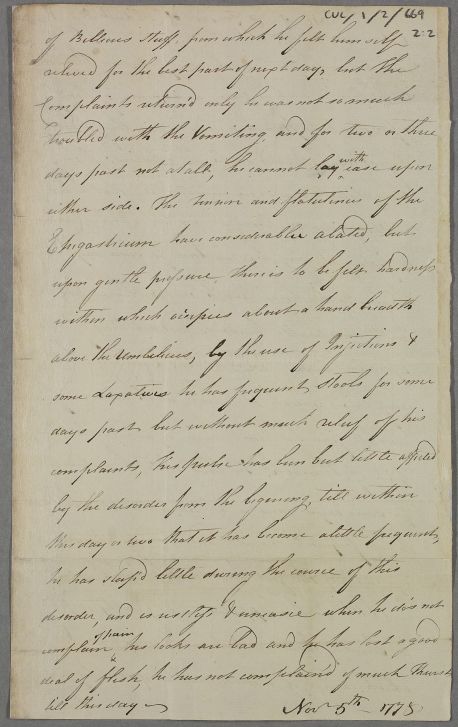 CUL/1/2/669
2:2
of Billious Stuff, from which he felt himself
relived for the best part of next day, but the
Complaints returnd only he was not so much
troubled with the Vomiting and for two or three
days past not atall, he cannot lay with ease upon
either side. The tension and flatulencies of the
Epigastrium have considerable abated, but
upon gentle pressure there is to be felt hardness
within which ocupies about a hand breadth
above the Umbelicus, by the use of Injections &
some Laxatives he has frequent stools for some
days past but without much relief of his
complaints, his pulse has been but little affected
by the desorder from the begening, till within
this day or two that it has become alittle frequent,
he has sleepd little during the course of this
desorder, and is restless & uneasie when he does not
complain of pain his looks are bad and he has lost a good
deal of flesh, he has not complaind of much Thurst
till this day
Novr 5th 1778